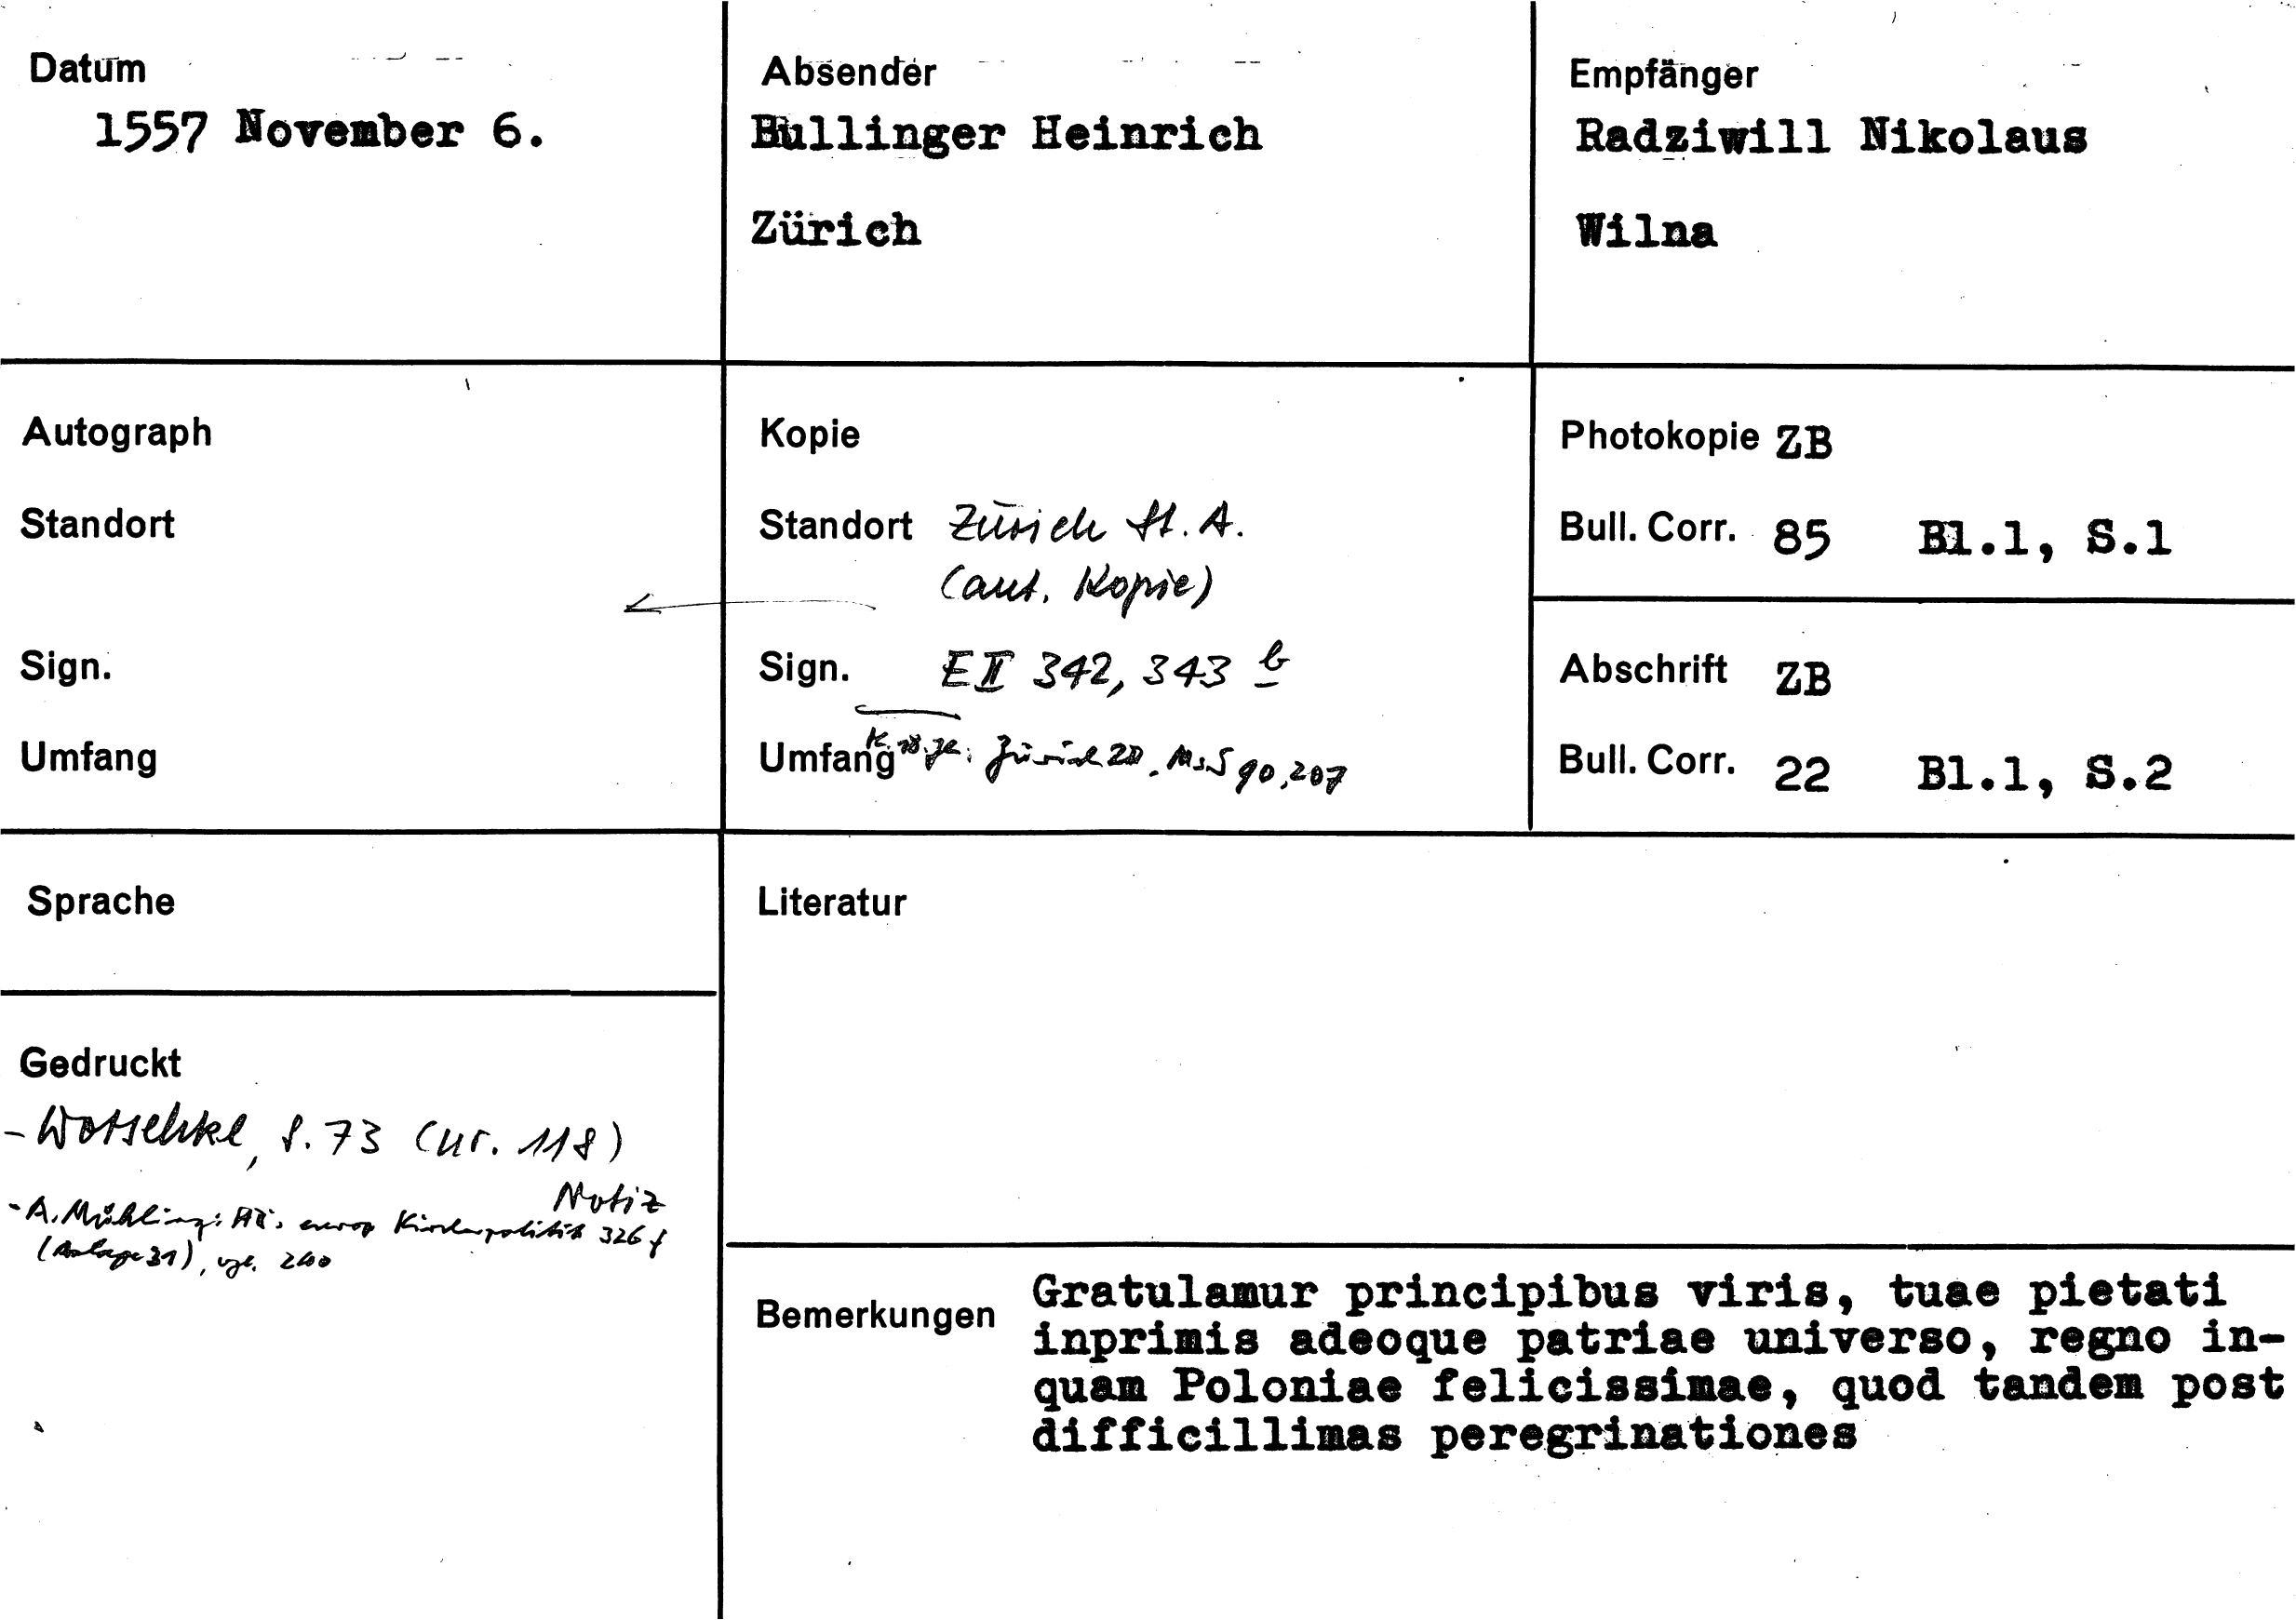 Datum
1557 November 6.
Absender
Bullinger Heinrich
Zürich
Empfänger
Radziwill Nikolaus
Wilna
Autograph
Standort
Sign.
Umfang
Kopie
Standort Zürich St. A.
(aut. Kopie)
Sign. E II 342, 343 b
Umfang K. 18. Jh.: Zürich ZB, Ms S 90, 207
Photokopie ZB
Bull. Corr. 85 Bl.1, S.1
Abschrift ZB
Bull. Corr. 22 Bl.1, S.2
Sprache
Gedruckt
- Wotschke, S. 73 (nr. 118)
Notiz
- A. Mühling: europ Kirchenpolitik 326 f
(Anlage 31), vgl. 200
Literatur
Bemerkungen
Gratulamur principibus viris, tuae pietati
inprimis adeoque patriae universo, regno in-
quam Poloniae felicissimae, quod tandem post
difficillimas peregrinationes